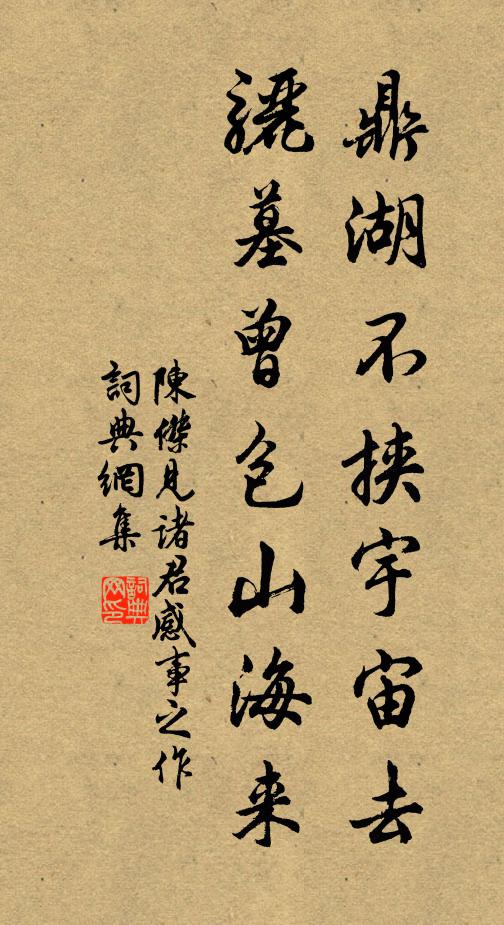 鼎湖不挾宇宙去
驪墓曾包山海来
陳傑見諸君感事之作
詞典網集
詞典网印